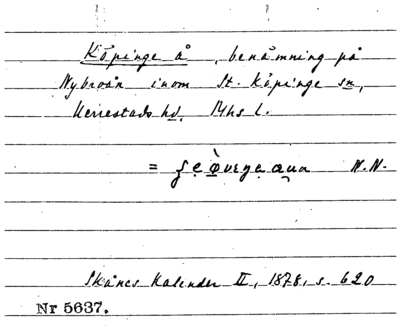 Köpinge å, benämning på
Nybroån inom St. Köpinge sn,
Herrestads hd, Mhs l.
= N.N.
Skånes Kalender II, 1878, s. 620
Nr 5637.